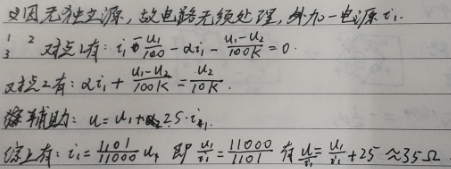 又因无独立源，故电路无须处理，外加一电源i₁.
1 2 对点1有：i₁ - u₁/100 - αi₁ - (u₁-u₂)/100K = 0.
3
对点2有：αi₁ + (u₁-u₂)/100K = u₂/10K.
辅助：u = u₁ + 25·i₁.
综上有：i₁ = 1101/11000 u₁ 即 u₁/i₁ = 11000/1101 有 u/i₁ = u₁/i₁ + 25 ≈ 35Ω